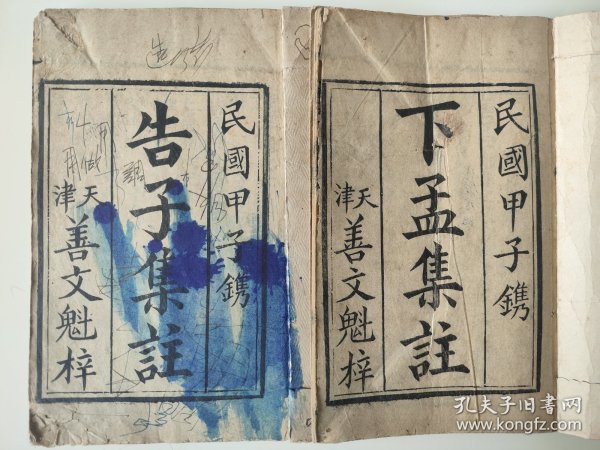 民國甲子鐫
下孟集註
天津
善文魁梓
民國甲子鐫
告子集註
天津
善文魁梓
孔夫子旧书网
www.kongfz.com